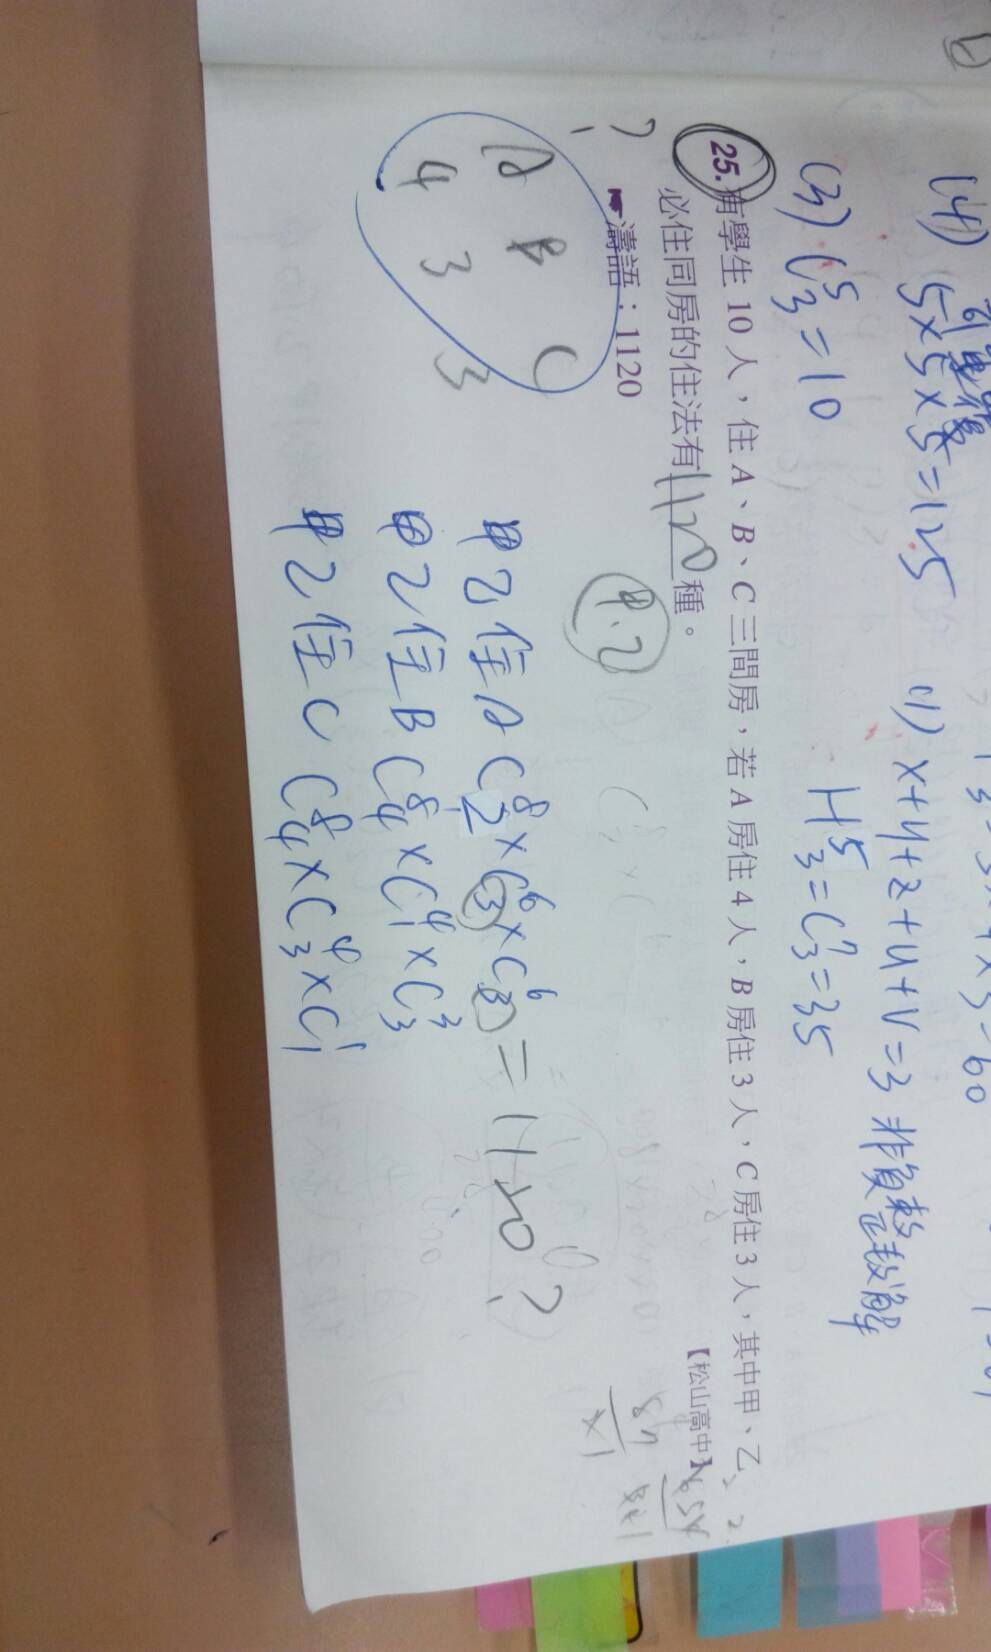 (4) 5×5×5=125
(1) x+y+z+u+v=3 非負整數解
(3) C⁵₃=10
H⁵₃=C⁷₃=35
25.有學生 10 人，住 A、B、C 三間房，若 A 房住 4 人，B 房住 3 人，C 房住 3 人，其中甲、乙
必住同房的住法有1120種。
【松山高中】
?
☛濤語：1120
甲.乙
A B C
4 3 3
甲乙住A C⁸₂×C⁶₃×C⁶₃=1120?
甲乙住B C⁸₄×C⁴₁×C³₃
甲乙住C C⁸₄×C⁴₃×C¹₁